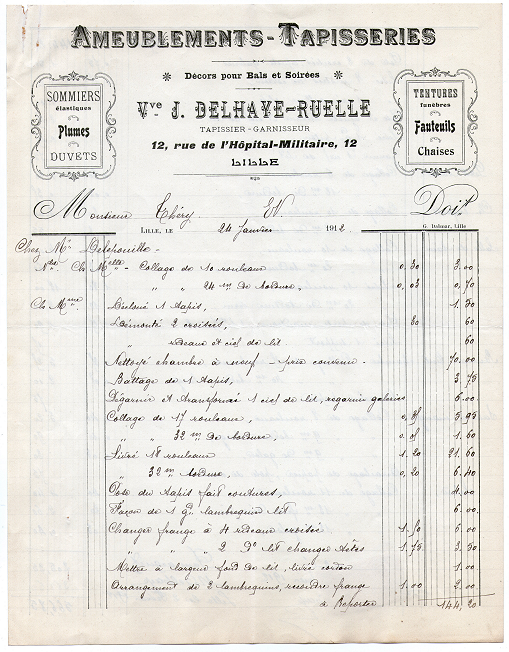 AMEUBLEMENTS-TAPISSERIES
Décors pour Bals et Soirées
SOMMIERS
élastiques
Plumes
DUVETS
Vve J. DELHAYE-RUELLE
TAPISSIER-GARNISSEUR
12, rue de l'Hôpital-Militaire, 12
LILLE
TENTURES
funèbres
Fauteuils
Chaises
Monsieur Théry Doit
LILLE, LE 24 Janvier 1912
G. Dubar, Lille
Chez Mr
Ch. Melle - Collage de 10 rouleaux 0,30 3.00
" " 24 m. de bordure, 0,03 0,70
Ch. Mme Décloué 1 tapis, 1.50
Démonté 2 croisées, 30 60
" rideaux et ciel de lit 60
Nettoyé chambre à neuf - prix convenu - 70.00
Battage de 1 tapis, 3.75
Dégarnir et transformé 1 ciel de lit, regarnir galeries 6.00
Collage de 17 rouleaux, 0,35 5.95
" " 32 m. de bordure, 0,05 1.60
Livré 18 rouleaux 1,20 21.60
" 32 m. bordure, 0,20 6.40
Pose du tapis fait coutures, 4.00
Façon de 1 gd. lambrequin lit 6.00
Changer frange à 4 rideaux croisée 1.50 6.00
" " " 2 do lit changer têtes 1.75 3.50
Mettre à largeur fond de lit, livré cordon 1.00
Arrangement de 2 lambrequins, recoudre frange 1.00 2.00
à Reporter 144,20